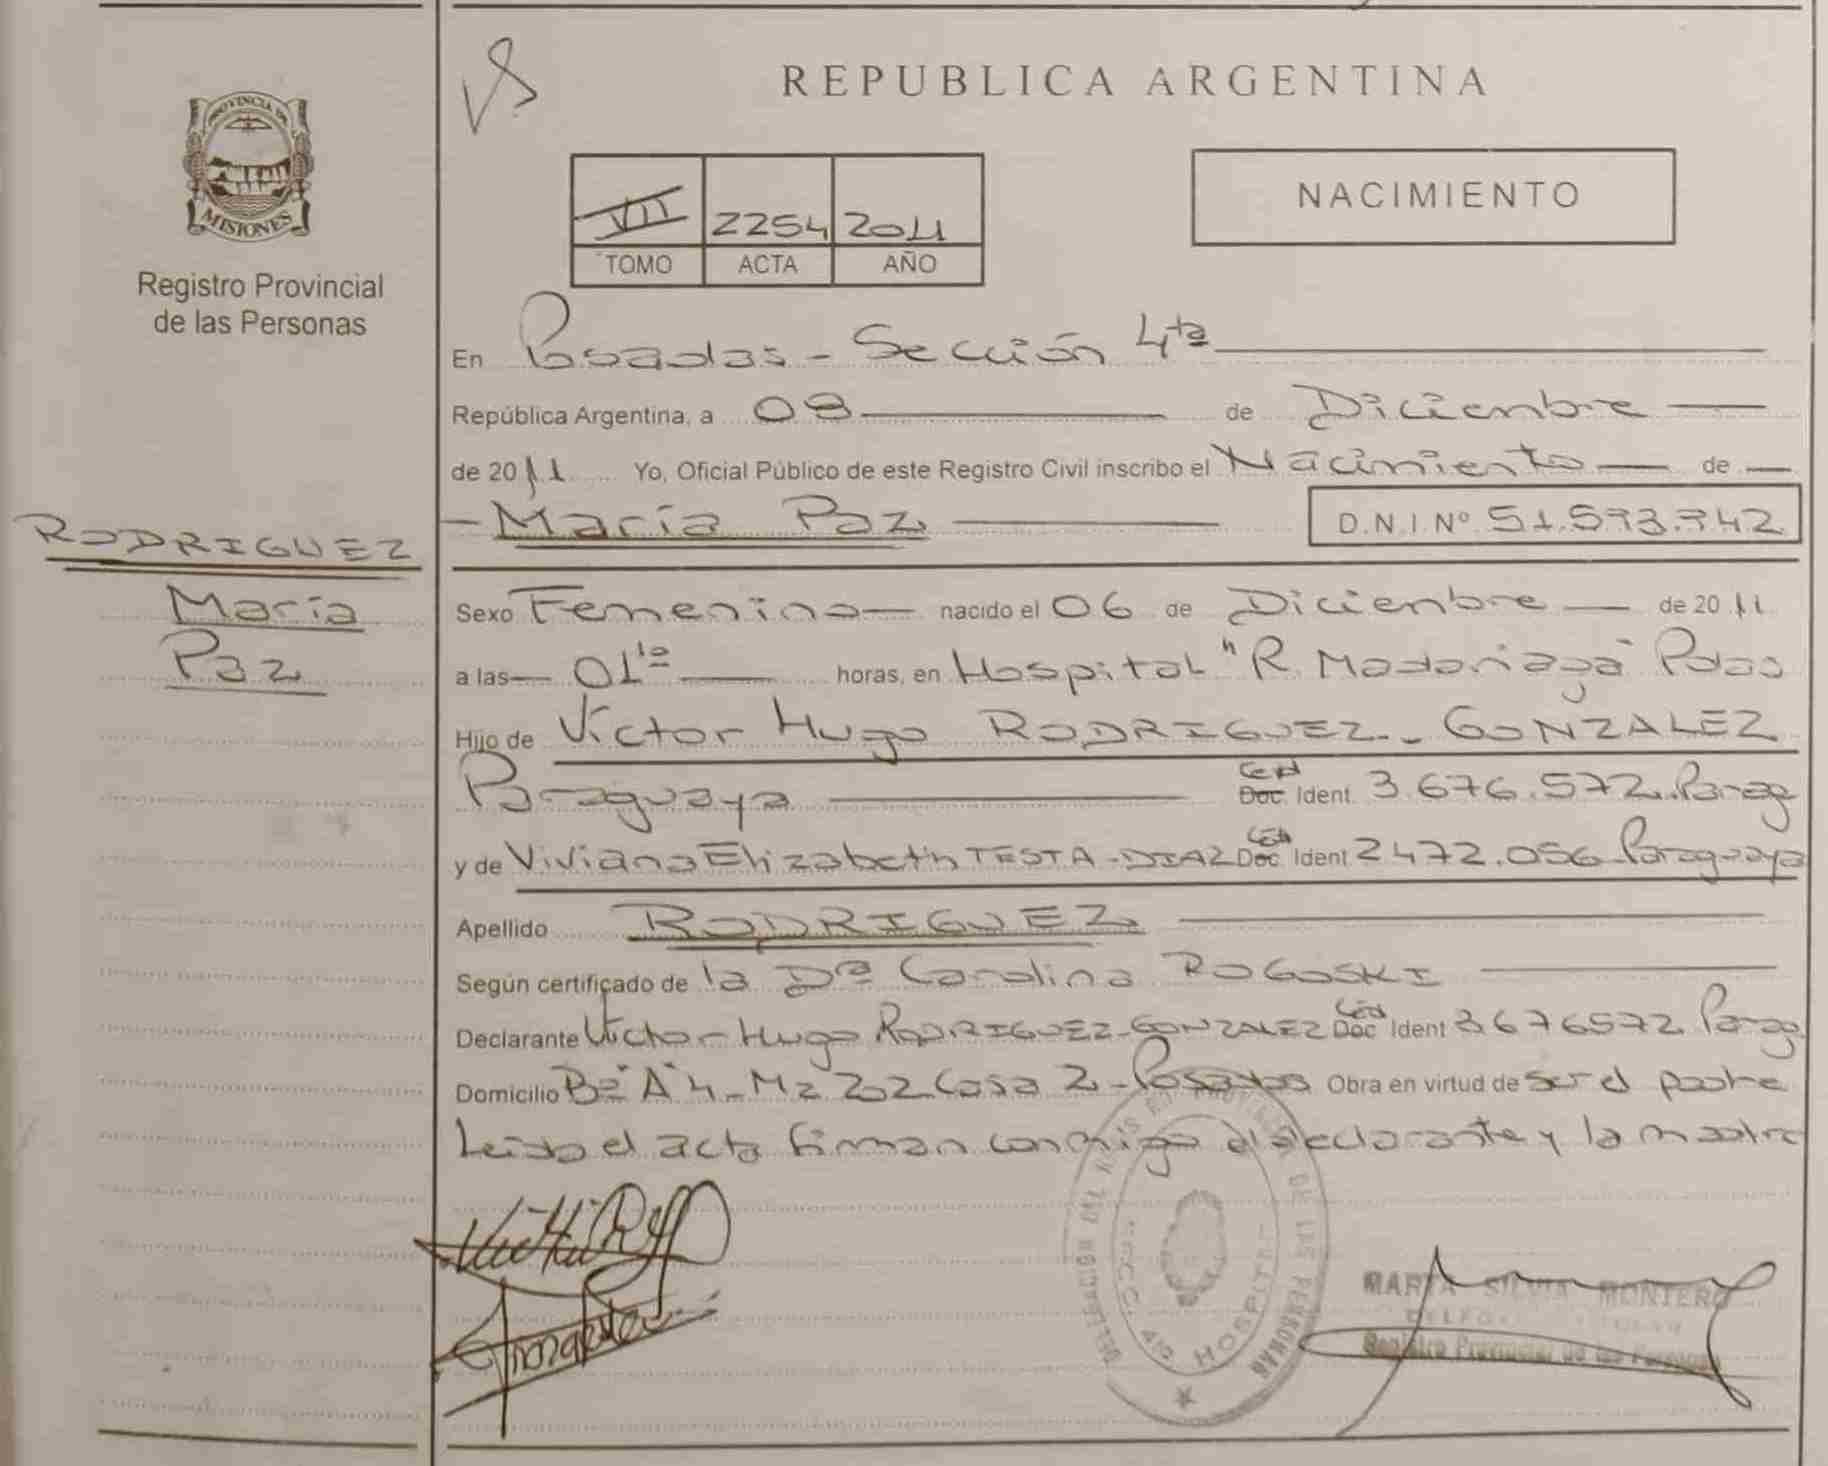 PROVINCIA DE
MISIONES
Registro Provincial
de las Personas
RODRIGUEZ
María
Paz
REPUBLICA ARGENTINA
NACIMIENTO
VII 2254 2011
TOMO ACTA AÑO
En Posadas - Sección 4ta
República Argentina, a 09 de Diciembre
de 2011 Yo, Oficial Público de este Registro Civil inscribo el Nacimiento de
María Paz D.N.I. Nº 51.593.742
Sexo Femenino nacido el 06 de Diciembre de 2011
a las 01 horas, en Hospital "R. Madariaga" Pdas
Hijo de Víctor Hugo RODRIGUEZ - GONZALEZ
Paraguaya Ced Doc. Ident. 3.676.572 Parag
y de Viviana Elizabeth TESTA - DIAZ Ced Doc. Ident 2472.056 Paraguaya
Apellido RODRIGUEZ
Según certificado de la Dra Carolina ROGOSKI
Declarante Víctor Hugo RODRIGUEZ - GONZALEZ Ced Doc Ident 3676572 Parag
Domicilio Bº "A" 4 - Mz 202 Casa 2 - Posadas Obra en virtud de ser el padre
Leido el acta firman conmigo el declarante y la madre
DELEGACIÓN DEL REGISTRO PROVINCIAL DE LAS PERSONAS
HOSPITAL
MARTA SILVIA MONTERO
Registro Provincial de las Personas